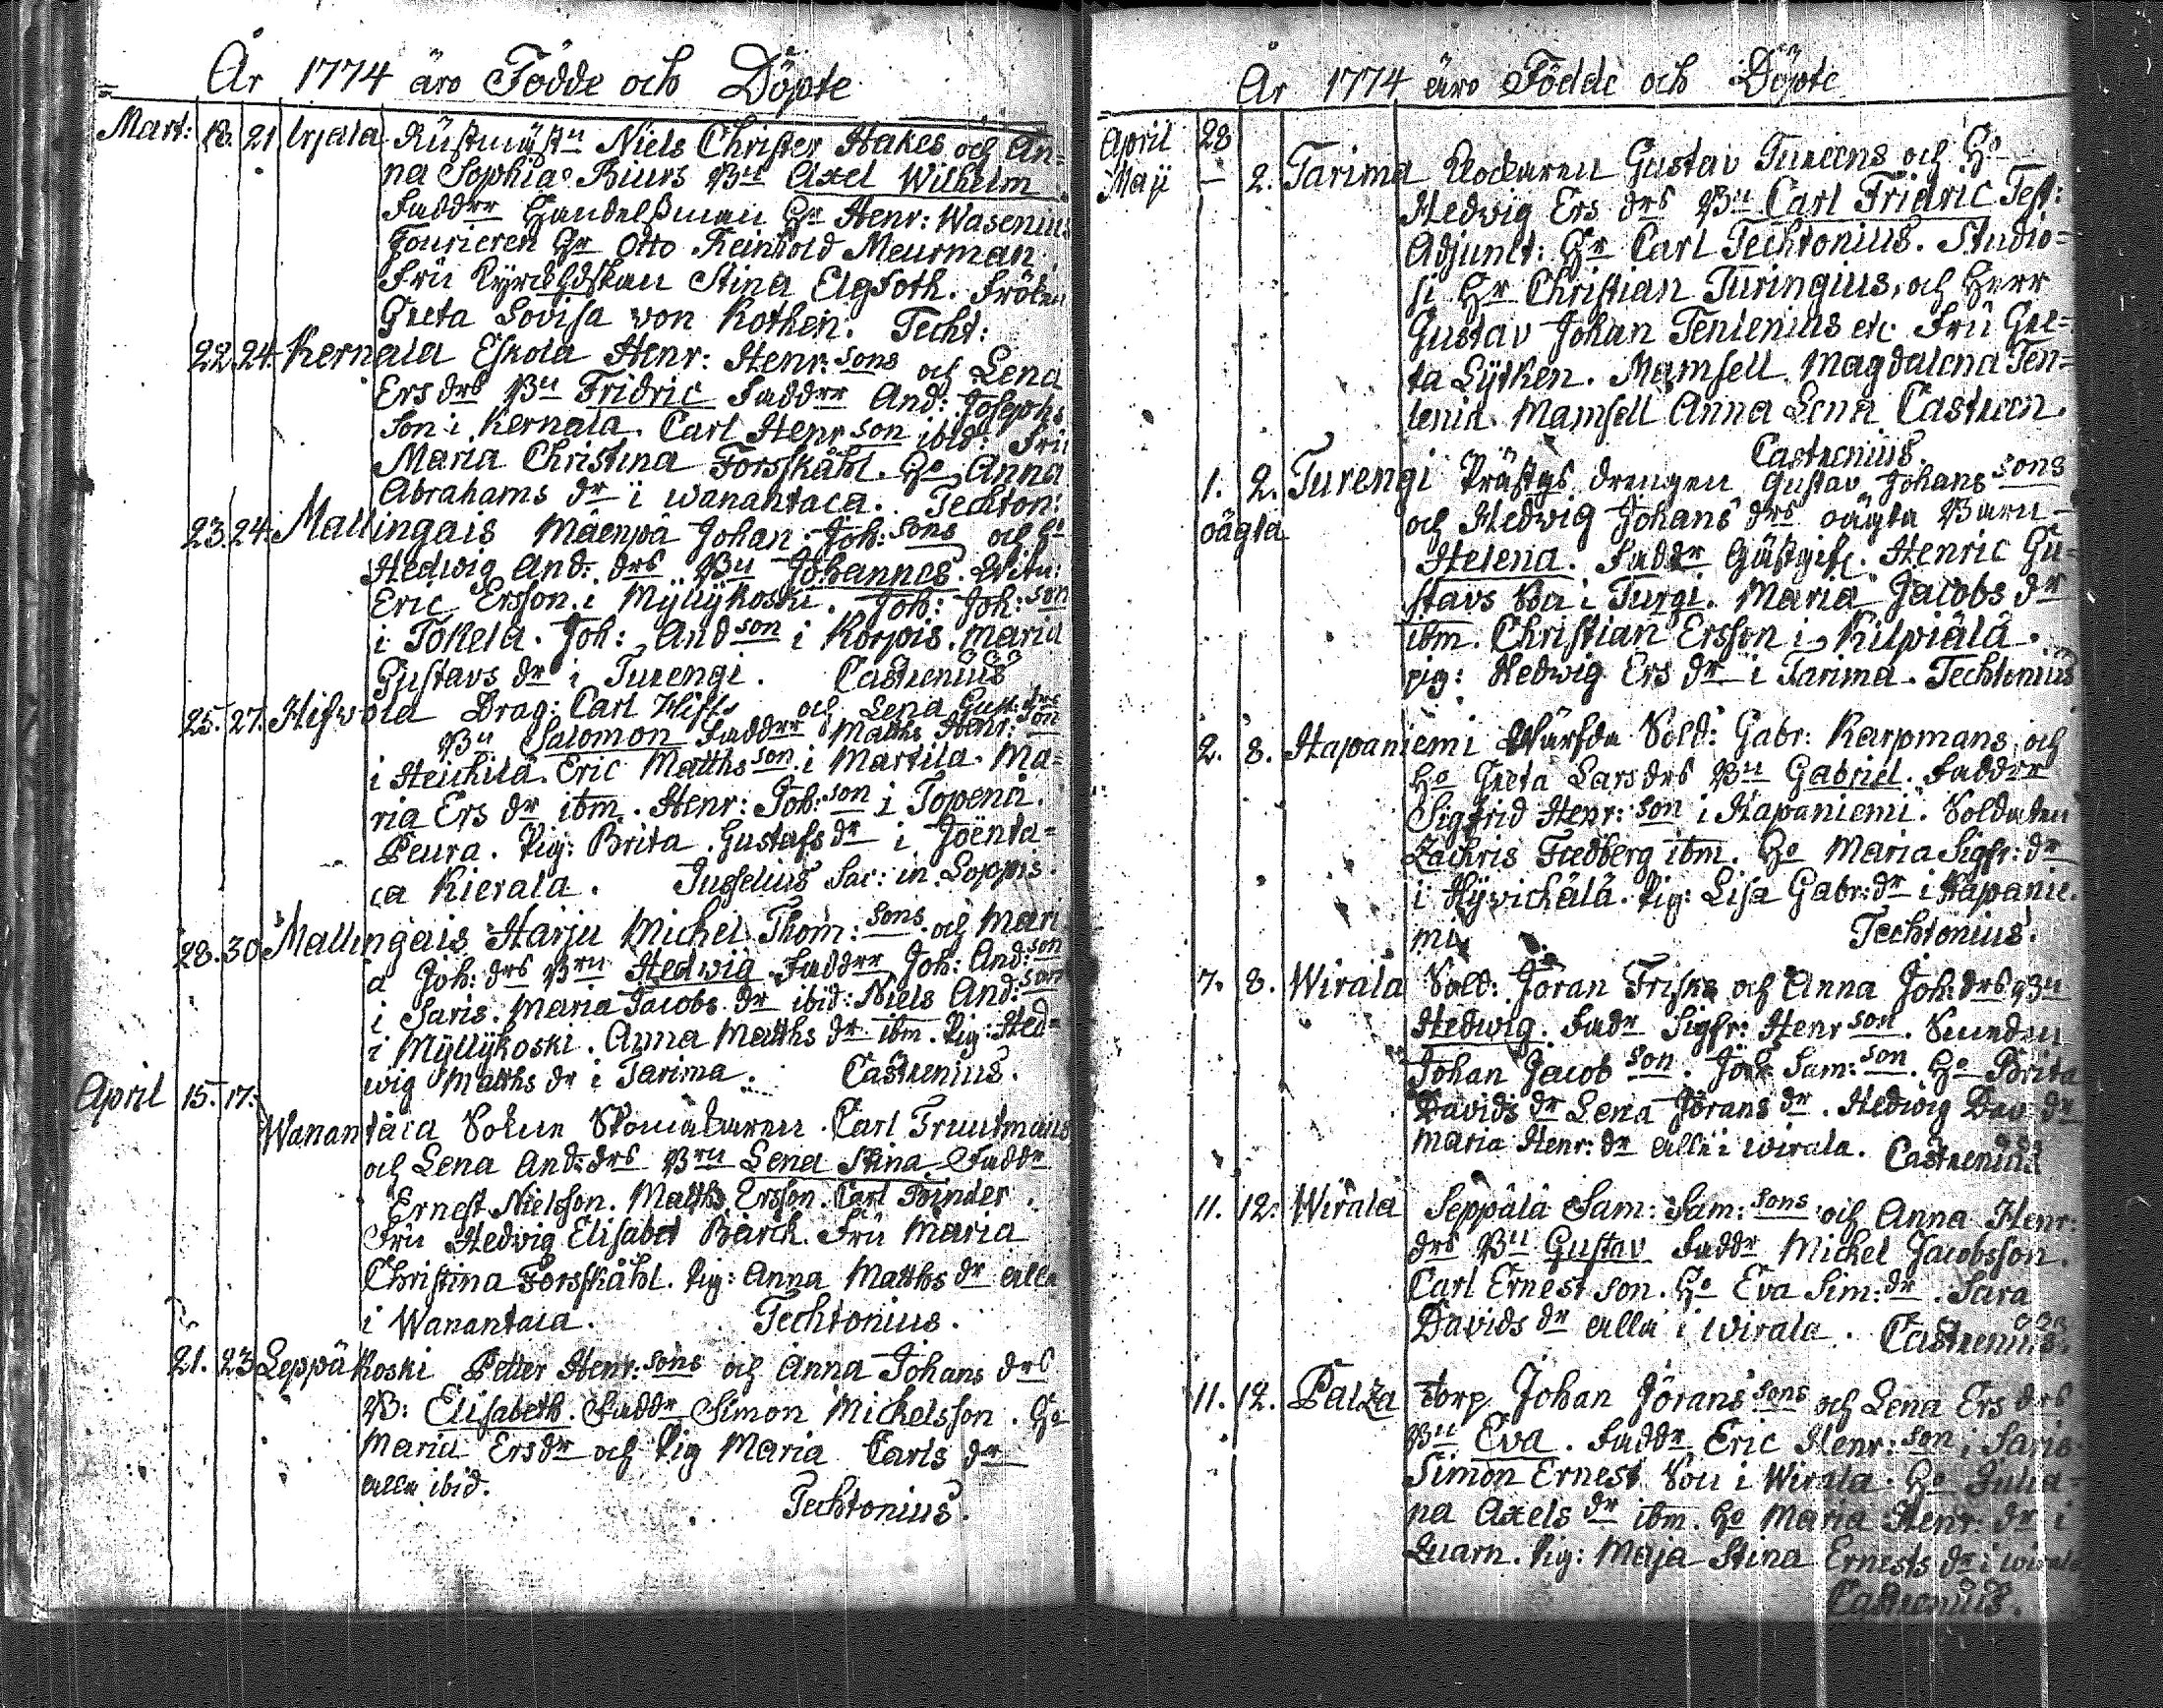 År 1774 äro Födde och Döpte
Mart: 18. 21 Urjala Rustmäst:n Niels Christer Hakes och An=
na Sophia Biurs B:n Axel Wilhelm
Fadd:rr Handelsman H:r Henr: Wasenius
Fourieren H:r Otto Reinhold Meurman.
Fru Stina Elgfoth. Fröken
Greta Lovisa von Kothen. Techt:
22. 24. Kernala Eskola Henr: Henr: sons och Lena
Ers drs B:n Fridric Fadd:rr And: Josephs
son i Kernala. Carl Henr son ibid: Fru
Maria Christina Forsskåhl. H:o Anna
Abrahams dr i Wanantaca. Techton:
23. 24. Mallingais Mäenpä Johan Joh: sons och H:o
Hedwig And: drs B:n Johannes. Witn:
Eric Ersson i Mÿllÿkoski. Joh: Joh: son
i Tökela. Joh: And son i Korpis. Maria
Gustavs dr i Turengi. Castrenius
25. 27. Hifwola Drag: Carl och Lena Gust: drs
B:n Salomon Fadd:rr Matths Henr: son
i Heickilä. Eric Matths son i Martila. Ma=
ria Ers dr ibm. Henr: Tob: son i Topeno.
Peura. Pig: Brita Gustafs dr i Joënta=
ca Kierala. Jusselius Sac: in Loppis
28. 30 Mallingais Harju Michel Thom: sons och Mari
a Joh: drs B:rn Hedwig Fadd:rr Joh: And: son
i Saris. Maria Jacobs dr ibid: Niels And: son
i Mÿllÿkoski. Anna Matths dr ibm. Pig: Hed=
wig Matths dr i Tarima. Castrenius.
April 15. 17.
Wanantaca Sokne Skomakaren Carl Truutmans
och Lena And: drs B:rn Lena Stina Fadd:r
Ernest Nielsson. Matths Ersson. Carl Brinder.
Fru Hedvig Elisabet Barck. Fru Maria
Christina Forsskåhl. Pig: Anna Matths dr alla
i Wanantaca. Techtonius.
21. 23 Leppäkoski Petter Henr: sons och Anna Johans drs
B: Elisabeth. Fadd:r Simon Mickelsson. H:o
Maria Ers dr och Pig Maria Carls dr
alla ibid.
Techtonius.
År 1774 äro Födde och Döpte
April 28
Maji – 2. Tarima Klockaren Gustav Tureens och H:o
Hedwig Ers drs B:n Carl Fridric Test:
Adjunct: H:r Carl Techtonius. Studio=
si H:r Christian Turingius, och Herr
Gustav Johan Tenlenius etc. Fru Gre=
ta Lÿtken. Mamsell Magdalena Ten=
lenia. Mamsell Anna Lena Castreen.
Castrenius.
1. 2. Turengi Prästgs drengen Gustav Johans sons
oägta och Hedwig Johans drs oägta Barn
Helena. Fadd:r Gästgifv. Henric Gu=
stavs Son i Turgi. Maria Jacobs dr
ibm. Christian Ersson i Kilpiälä.
pig: Hedwig Ers dr i Tarima. Techtonius
2. 8. Hapaniemi Wärfda Sold: Gabr: Karpmans och
H:o Greta Lars drs B:n Gabriel. Fadd:rr
Sigfrid Henr: son i Hapaniemi. Soldaten
Zachris Fredberg ibm. H:o Maria Sigfr: dr
i Hÿvickälä. Pig: Lisa Gabr: dr i Hapanie
mi. Techtonius.
7. 8. Wirala Sold: Jöran Frisks och Anna Joh: drs B:n
Hedwig. Fad:r Sigfr: Henr son.
Johan Jacob son. Joh Sam: son. H:o Brita
Davids dr Lena Jörans dr. Hedwig Dav: dr
Maria Henr: dr alla i Wirala. Castrenius
11. 12. Wirala Seppälä Sam: Sam: sons och Anna Henr:
drs B:n Gustav Fadd:r Mickel Jacobsson.
Carl Ernest son. H:o Eva Sim: dr. Sara
Davids dr alla i Wirala. Castrenius.
11. 12. Palza Torp Johan Jörans sons och Lena Ers drs
B:n Eva. Fadd:r Eric Henr: son i Saris.
Simon Ernest Son i Wirala. H:o Julia=
na Axels dr ibm. H:o Maria Henr: dr i
Quarn. Pig: Maja Stina Ernests dr i Wirala
Castrenius.